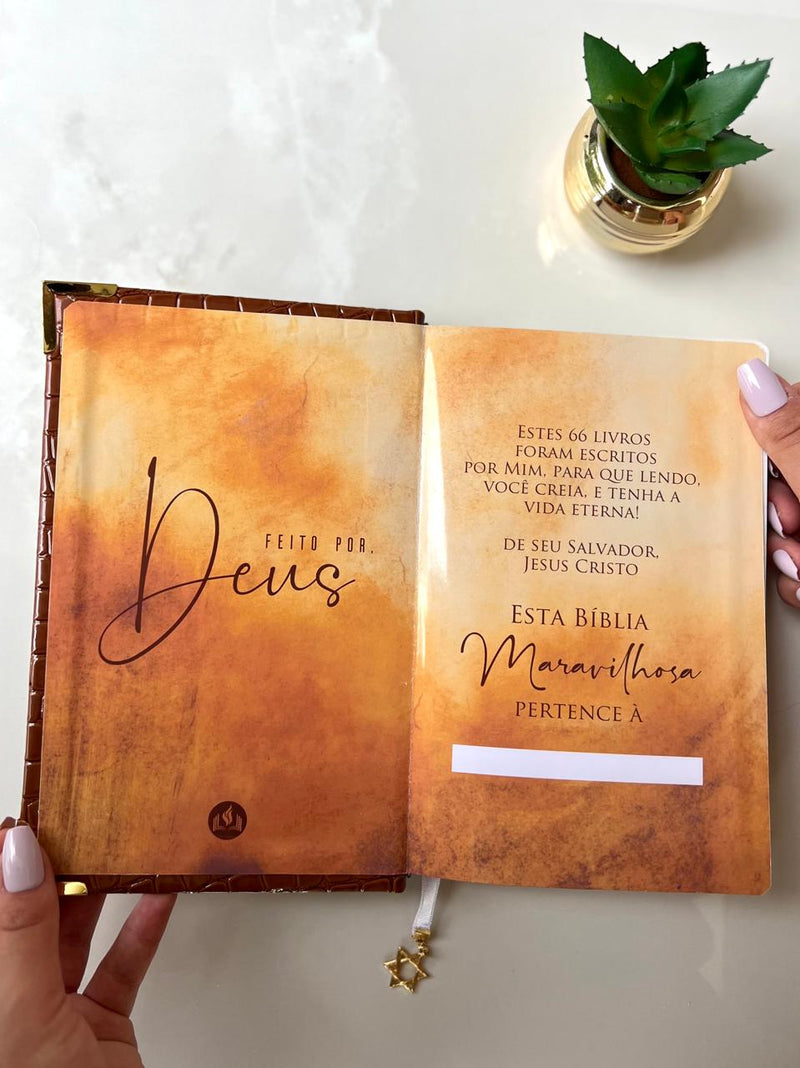 FEITO POR,
Deus
ESTES 66 LIVROS
FORAM ESCRITOS
POR MIM, PARA QUE LENDO,
VOCÊ CREIA, E TENHA A
VIDA ETERNA!
DE SEU SALVADOR,
JESUS CRISTO
ESTA BÍBLIA
Maravilhosa
PERTENCE À